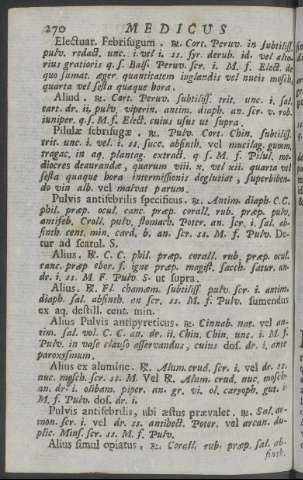 270 MEDICUS
Electuar. Febrifugum. ℞. Cort. Peruv. in subtiliss.
pulv. redact. unc. i. vel i. ss. syr. derub. id. vel alte-
rius gratioris q. s. Bals. Peruv. scr. i. M. f. Elect. de
quo sumat. æger. quantitatem iuglandis vel nucis mosch.
quarta vel sexta quaque hora.
Aliud. ℞. Cort. Peruv. subtiliss. trit. unc. i. sal.
tart. dr. ii. pulv. viperin. antim. diaph. an. scr. v. rob.
iuniper. q. s. M. f. Elect. cuius usus ut supra.
Pilulæ febrifugæ, ℞. Pulv. Cort. Chin. subtiliss.
trit. unc. i. vel. i. ss. succ. absinth. vel mucilag. gumm.
tragac. in aq. plantag. extract. q. s. M. f. Pilul. me-
diocres deaurandæ, quarum viii. x. vel xii. quarta vel
sexta quaque hora intermissionis deglutiat, superbiben-
do vin alb. vel malvat parum.
Pulvis antifebrilis specificus. ℞. Antim. diaph. C.C.
phil. præp. ocul. canc. præp. corall. rub. præp. pulv.
antifeb. Croll. pulv. stomach. Poter. an. scr. i. sal. ab-
sinth. cent. min. card. b. an. scr. ss. M. f. Pulv. De-
tur ad scatul. S.
Alius. ℞. C. C. phil. præp. corall. rub. præp. ocul.
canc. præp. ebor. s. igne præp. magist. sacch. satur. an-
dr. i. ss. M. F. Pulv. S. ut supra.
Alius. ℞. Fl. chamæm. subtiliss. pulv. scr. i. antim.
diaph. sal. absinth. an scr. ss. M. f. Pulv. sumendus
ex aq. destill. cent. min.
Alius Pulvis antipyreticus. ℞. Cinnab. nat. vel an-
tim. sal. vol. C. C. an. dr. ii. Chin. Chin. unc. i. M. f.
Pulv. in vase clauso asservandus, cuius dos. dr. i. ante
paroxismum.
Alius ex alumine. ℞. Alum. crud. scr. i. vel dr. ss.
nuc. mosch. scr. ss. M. Vel ℞. Alum. crud. nuc. mosch.
an. dr. i. olibani. piper. an. gr. vi. ol. caryoph. gut. i.
M. f. Pulv. dos. dr. i.
Pulvis antifebrilis, ubi æstus prævalet. ℞. Sal. ar-
mon. scr. i. vel dr. ss. antihect. Poter. vel arcan. du-
plic. Mins. scr. ss. M. f. Pulv.
Alius simul opiatus, ℞. Corall. rub. præp. sal. ab-
sinth.